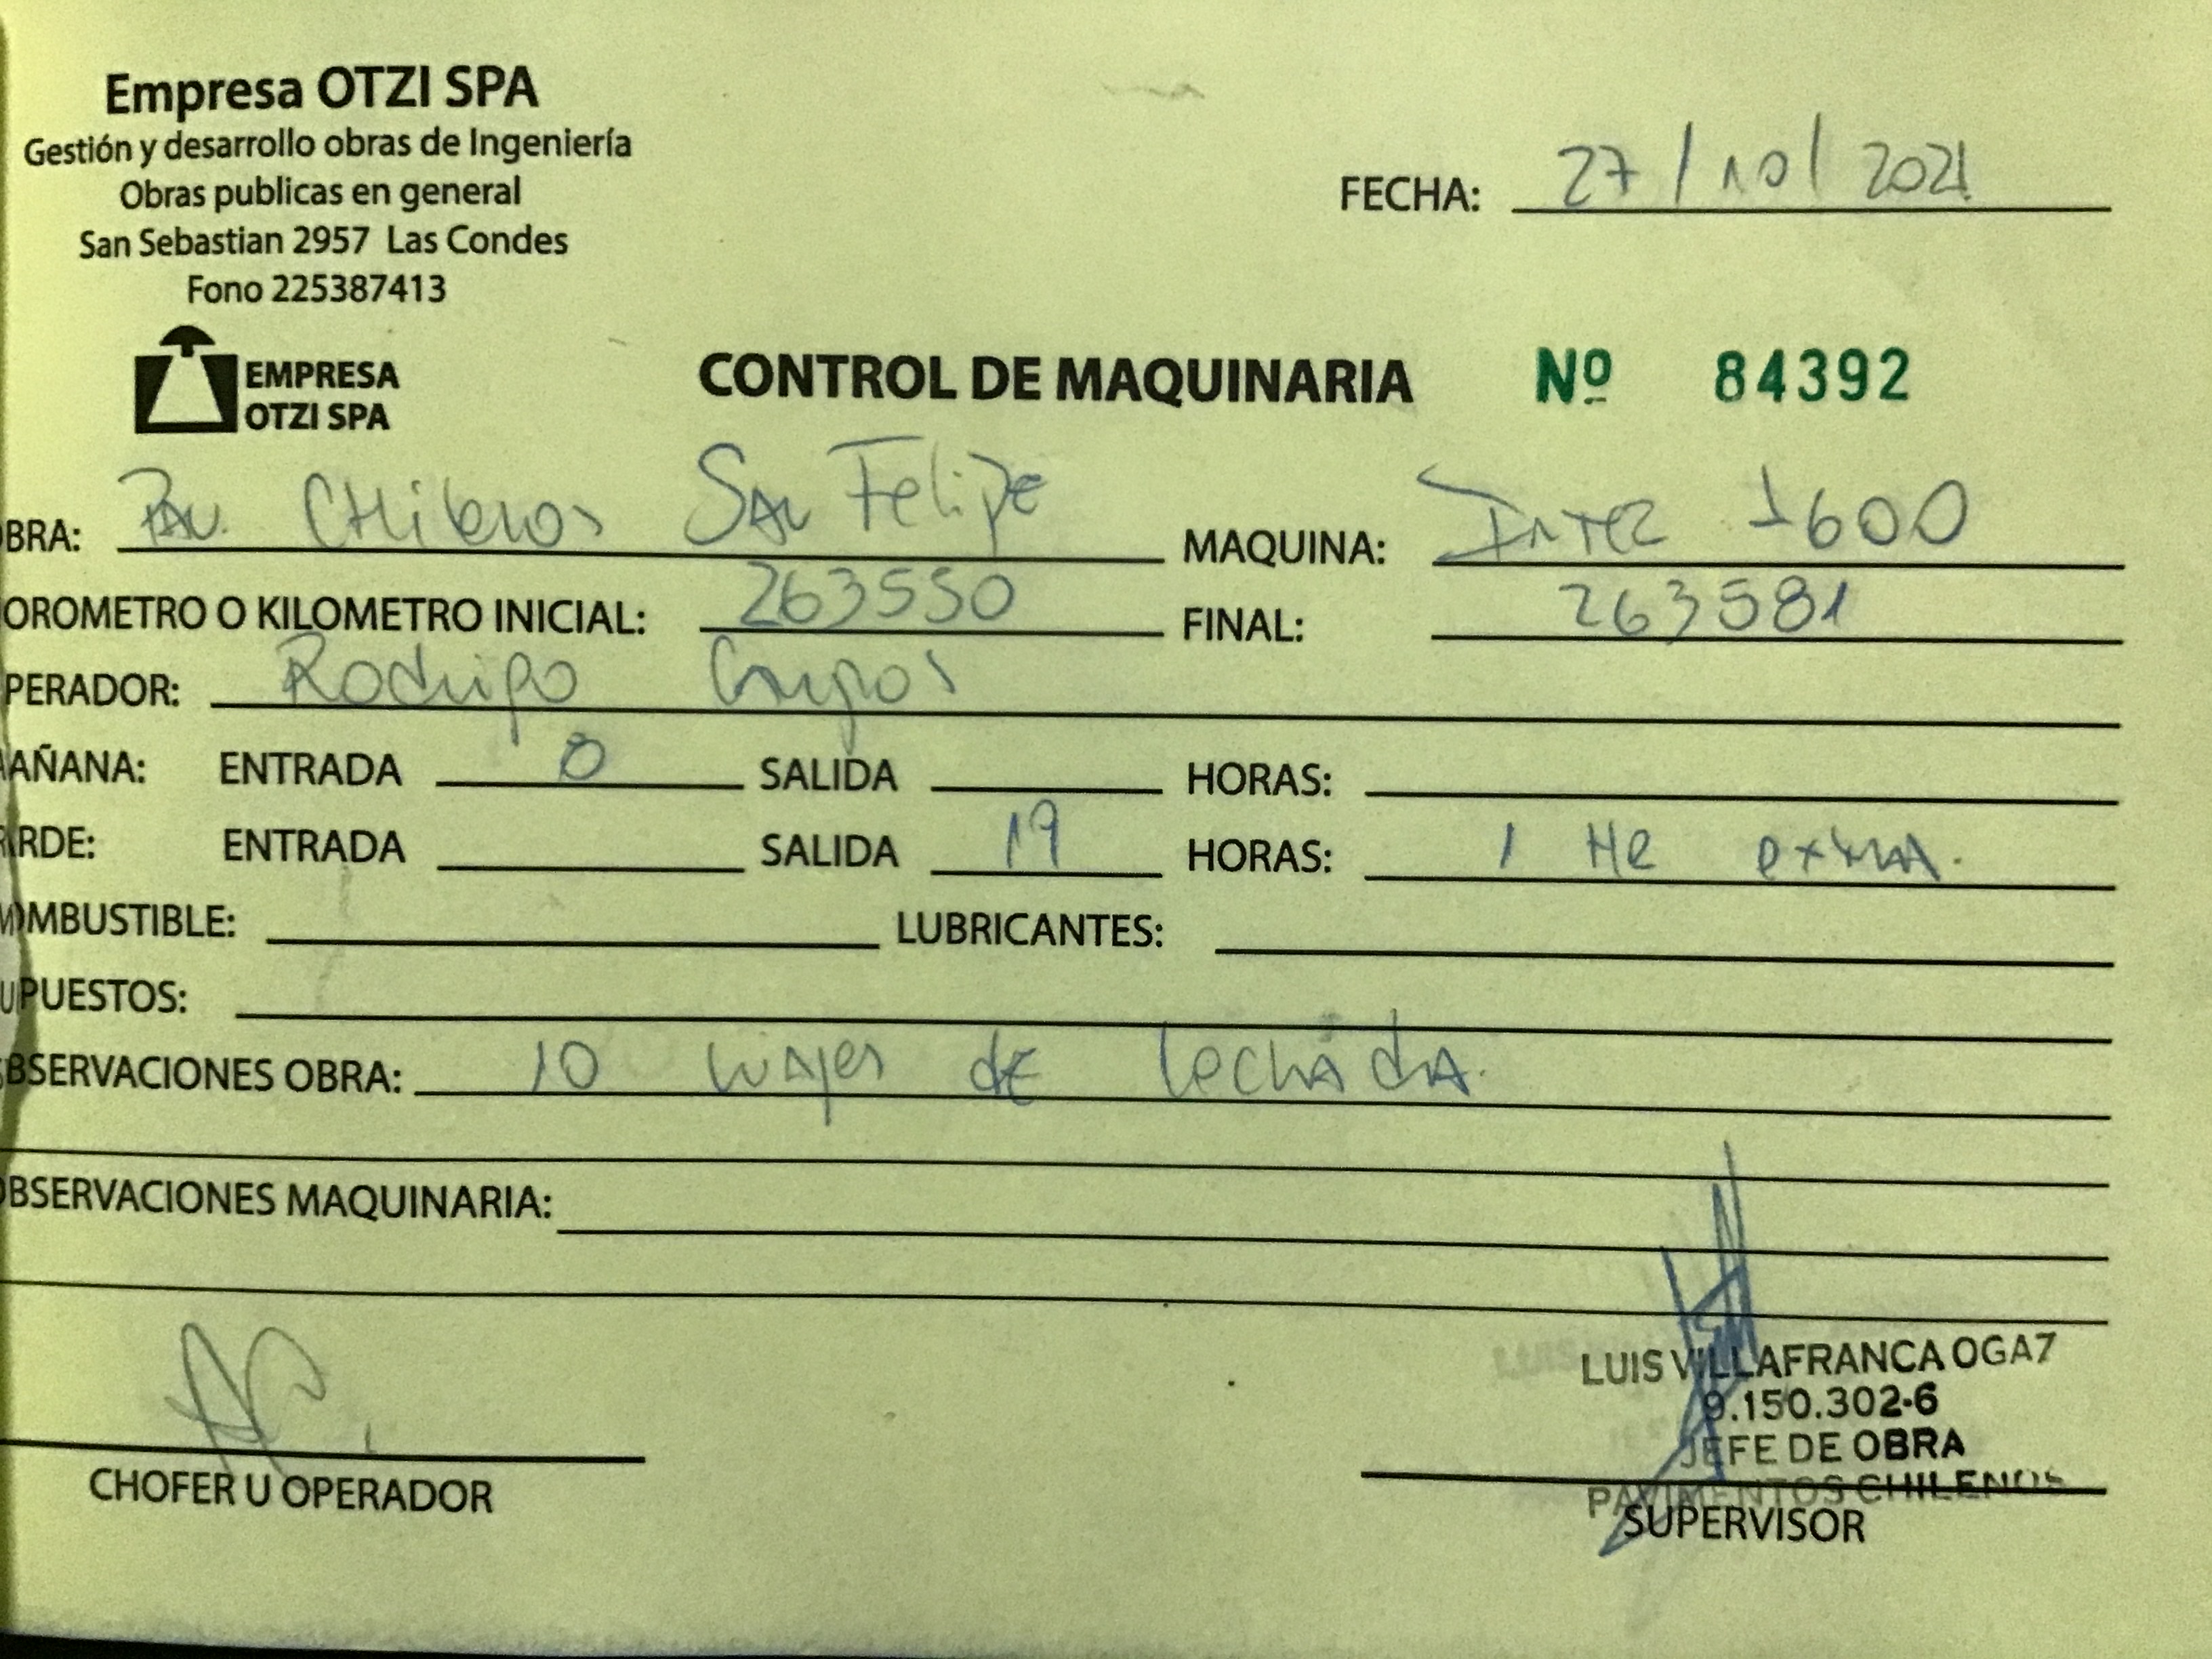 Empresa OTZI SPA
Gestión y desarrollo obras de Ingeniería
Obras publicas en general
San Sebastian 2957 Las Condes
Fono 225387413
FECHA: 27/10/2021
EMPRESA
OTZI SPA
CONTROL DE MAQUINARIA Nº 84392
BRA: Pav. CHilenos San Felipe MAQUINA: Inter 1600
OROMETRO O KILOMETRO INICIAL: 263550 FINAL: 263581
PERADOR: Rodrigo
AÑANA: ENTRADA 8 SALIDA HORAS:
RDE: ENTRADA SALIDA 19 HORAS: 1 HR extra.
MBUSTIBLE: LUBRICANTES:
PUESTOS:
BSERVACIONES OBRA: 10 viajes de lechada.
BSERVACIONES MAQUINARIA:
LUIS VILLAFRANCA OGAZ
9.150.302-6
JEFE DE OBRA
PAVIMENTOS CHILENOS
CHOFER U OPERADOR
SUPERVISOR